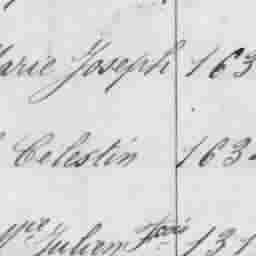 Marie Joseph 163
Celestin 163
Julien 131